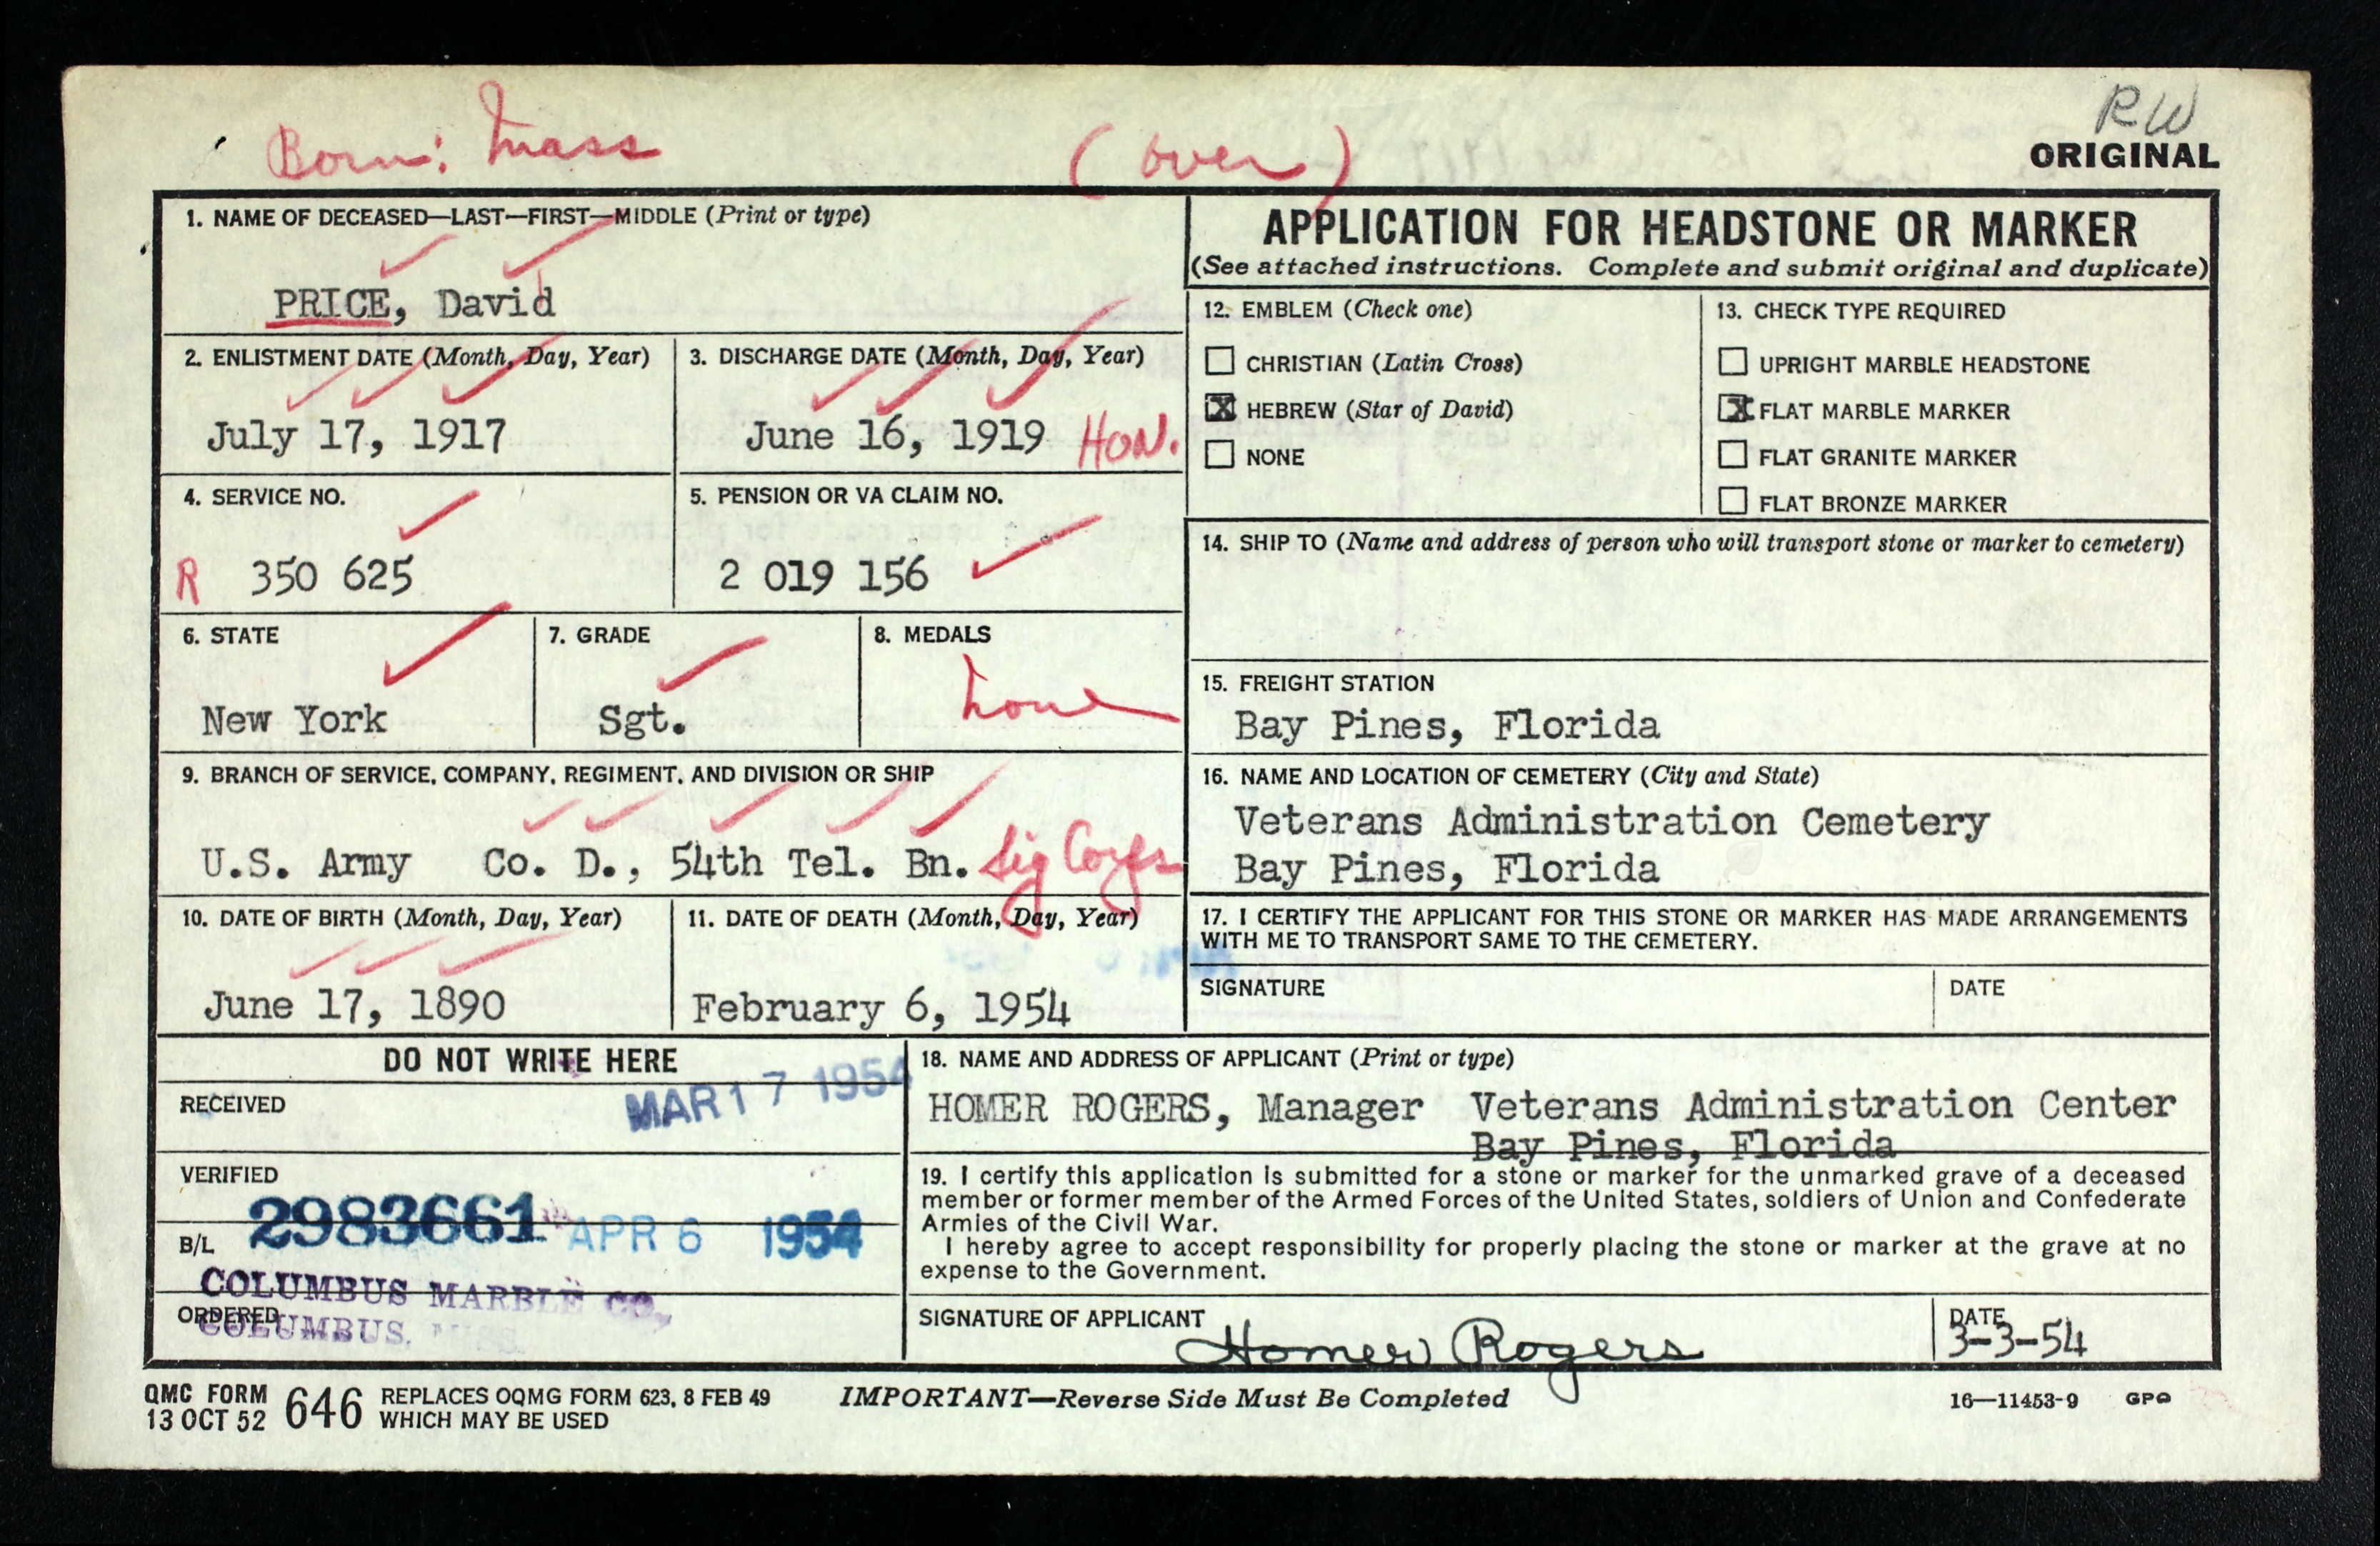 Born: Mass
(over)
RW
ORIGINAL
1. NAME OF DECEASED—LAST—FIRST—MIDDLE (Print or type)
PRICE, David
2. ENLISTMENT DATE (Month, Day, Year)
July 17, 1917
3. DISCHARGE DATE (Month, Day, Year)
June 16, 1919 HON.
4. SERVICE NO.
R 350 625
5. PENSION OR VA CLAIM NO.
2 019 156
6. STATE
New York
7. GRADE
Sgt.
8. MEDALS
none
9. BRANCH OF SERVICE, COMPANY, REGIMENT, AND DIVISION OR SHIP
U.S. Army Co. D., 54th Tel. Bn. Sig Corps
10. DATE OF BIRTH (Month, Day, Year)
June 17, 1890
11. DATE OF DEATH (Month, Day, Year)
February 6, 1954
APPLICATION FOR HEADSTONE OR MARKER
(See attached instructions. Complete and submit original and duplicate)
12. EMBLEM (Check one)
CHRISTIAN (Latin Cross)
X HEBREW (Star of David)
NONE
13. CHECK TYPE REQUIRED
UPRIGHT MARBLE HEADSTONE
X FLAT MARBLE MARKER
FLAT GRANITE MARKER
FLAT BRONZE MARKER
14. SHIP TO (Name and address of person who will transport stone or marker to cemetery)
15. FREIGHT STATION
Bay Pines, Florida
16. NAME AND LOCATION OF CEMETERY (City and State)
Veterans Administration Cemetery
Bay Pines, Florida
17. I CERTIFY THE APPLICANT FOR THIS STONE OR MARKER HAS MADE ARRANGEMENTS
WITH ME TO TRANSPORT SAME TO THE CEMETERY.
SIGNATURE
DATE
DO NOT WRITE HERE
RECEIVED
MAR 17 1954
VERIFIED
2983661 APR 6 1954
B/L
COLUMBUS MARBLE CO.
ORDERED
COLUMBUS, MISS.
18. NAME AND ADDRESS OF APPLICANT (Print or type)
HOMER ROGERS, Manager Veterans Administration Center
Bay Pines, Florida
19. I certify this application is submitted for a stone or marker for the unmarked grave of a deceased
member or former member of the Armed Forces of the United States, soldiers of Union and Confederate
Armies of the Civil War.
I hereby agree to accept responsibility for properly placing the stone or marker at the grave at no
expense to the Government.
SIGNATURE OF APPLICANT
Homer Rogers
DATE
3-3-54
QMC FORM
13 OCT 52 646 REPLACES OQMG FORM 623, 8 FEB 49
WHICH MAY BE USED
IMPORTANT—Reverse Side Must Be Completed
16—11453-9 GPO